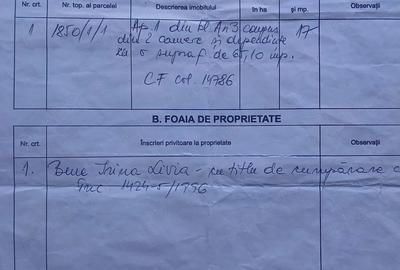 Nr. crt. Nr. top. al parcelei Descrierea imobilului în ha și mp. Observații
1 1850/1/1 Ap. 1 din bl. An3 compus 17
din 2 camere și dependințe
cu o supraf de 65,10 mp.
CF col. 14786
B. FOAIA DE PROPRIETATE
Nr. crt. Înscrieri privitoare la proprietate Observații
1. Irina Livia - cu titlu de cumpărare
1424-5/1996